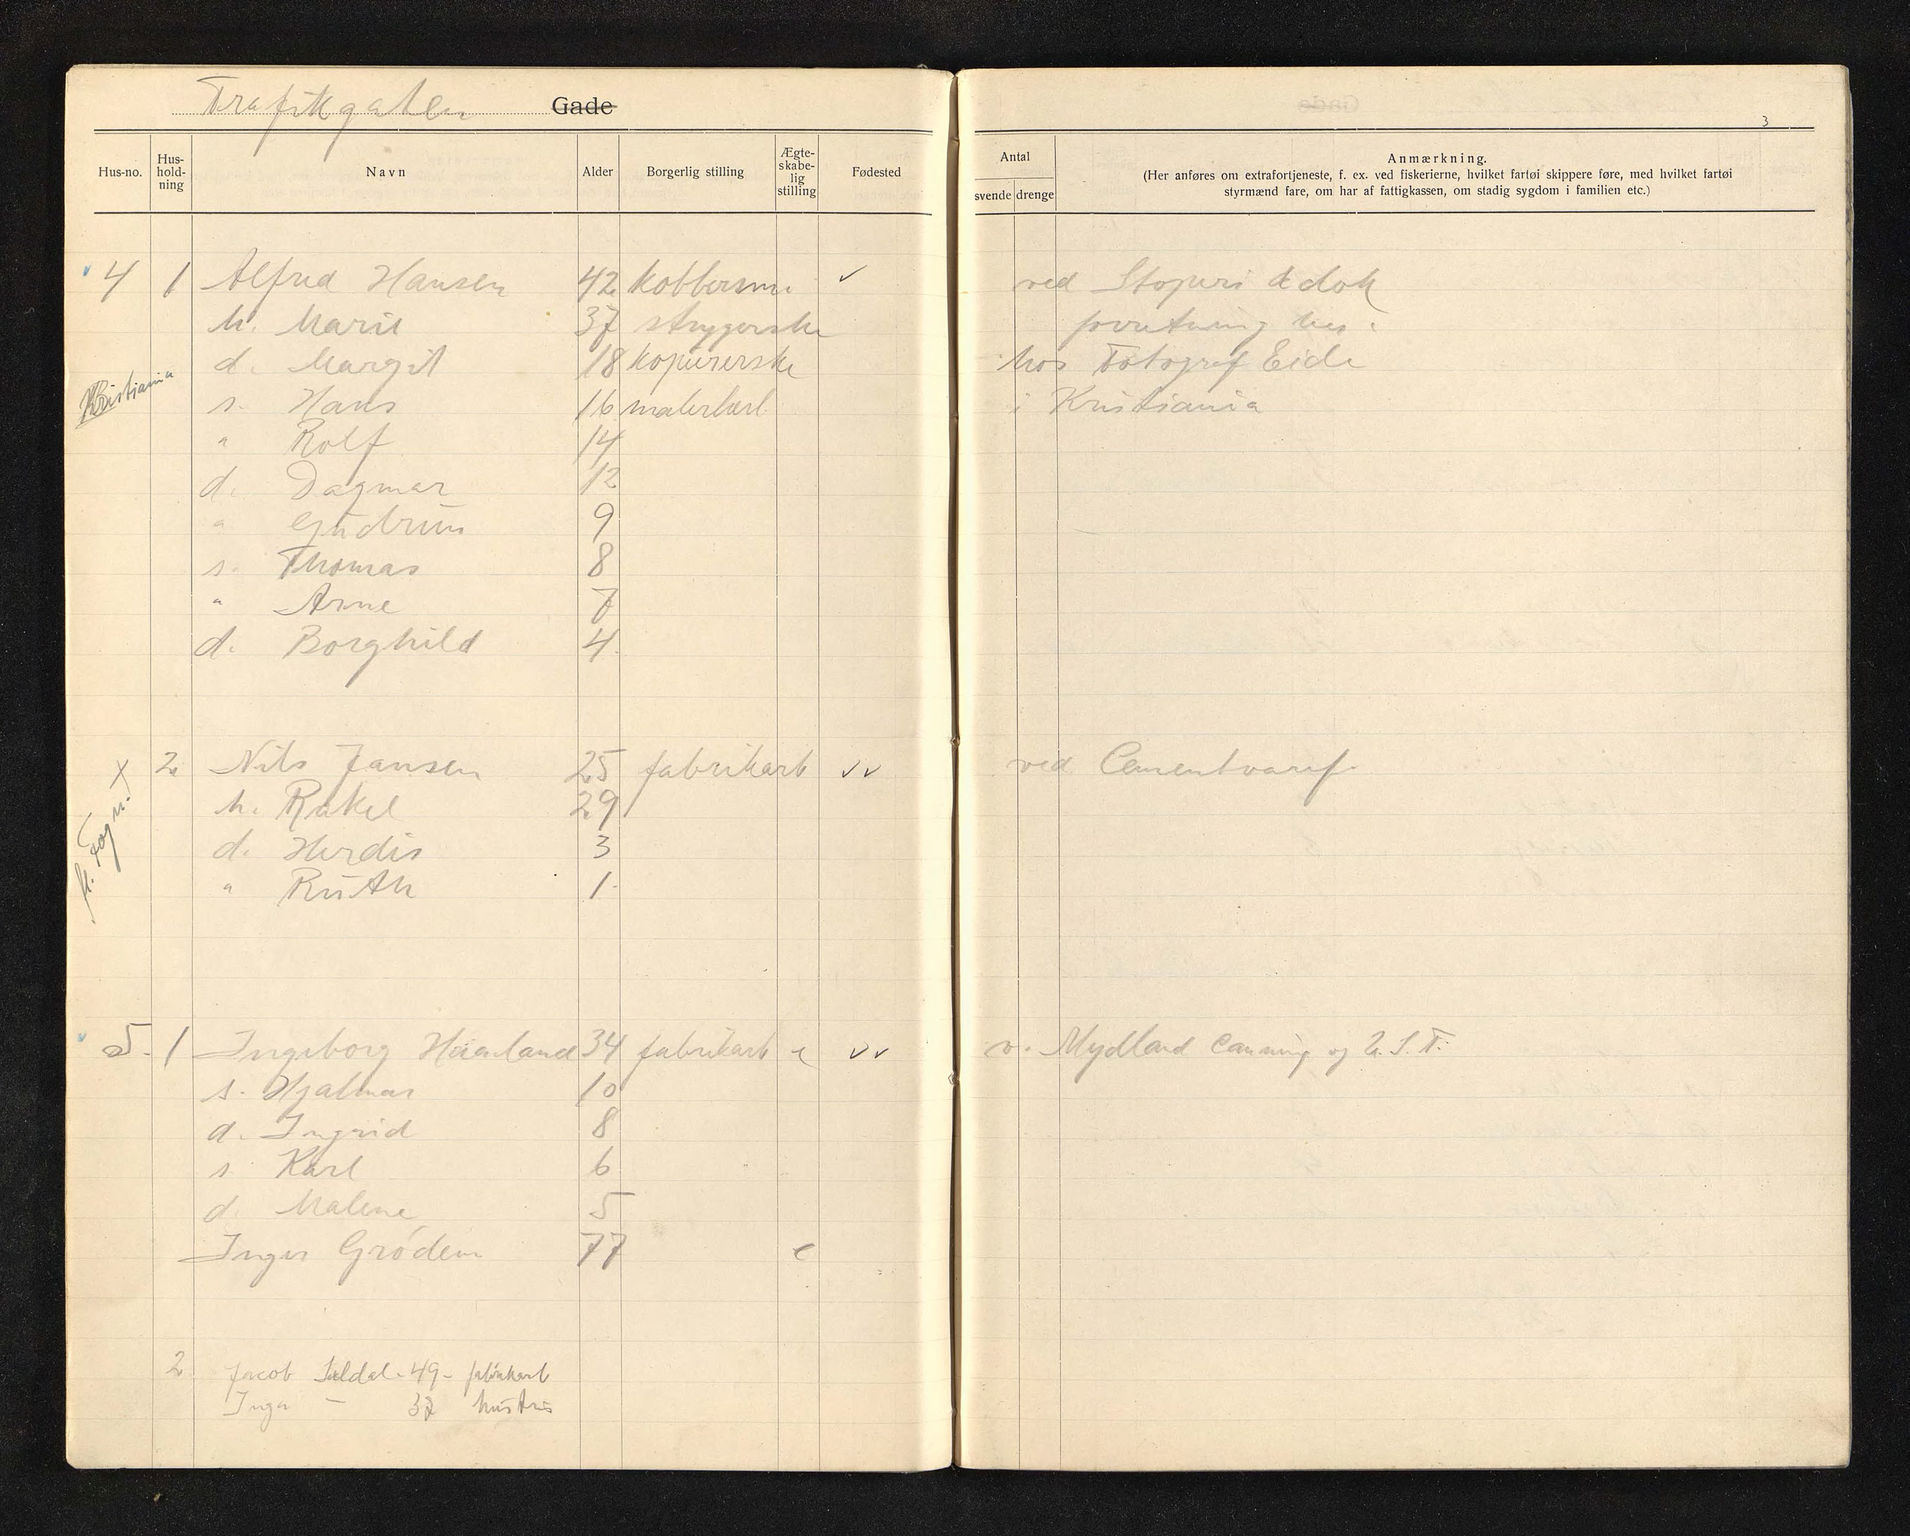 Trafikgaten Gade
3
Hus-no. Hus-hold-ning Navn Alder Borgerlig stilling Ægte-skabe-lig stilling Fødested Antal svende drenge Anmærkning.
(Her anføres om extrafortjeneste, f. ex. ved fiskerierne, hvilket fartøi skippere føre, med hvilket fartøi
styrmænd fare, om har af fattigkassen, om stadig sygdom i familien etc.)
4 1 Alfred Hansen 42 kobbersm. ✓ ved Støperi & dok
h. Marie 37 strygerske forretning
d. Margit 18 kopiererske hos Fotograf Eide
Kristiania s. Hans 16 malerlærl i Kristiania
" Rolf 14
d. Dagmar 12
" Gudrun 9
s. Thomas 8
" Arne 7
d. Borghild 4
2 Nils Jansen 25 fabrikarb ✓✓ ved Cementvaref.
h. Rakel 29
d. Herdis 3
" Ruth 1
5. 1 Ingeborg Haaland 34 fabrikarb e ✓✓ v. Mydland Canning og
s. Hjalmar 10
d. Ingrid 8
s. Karl 6
d. Malene 5
Inger Grödem 77 e
2 Jacob 49 - fabrikarb
Inga — 37 hustru